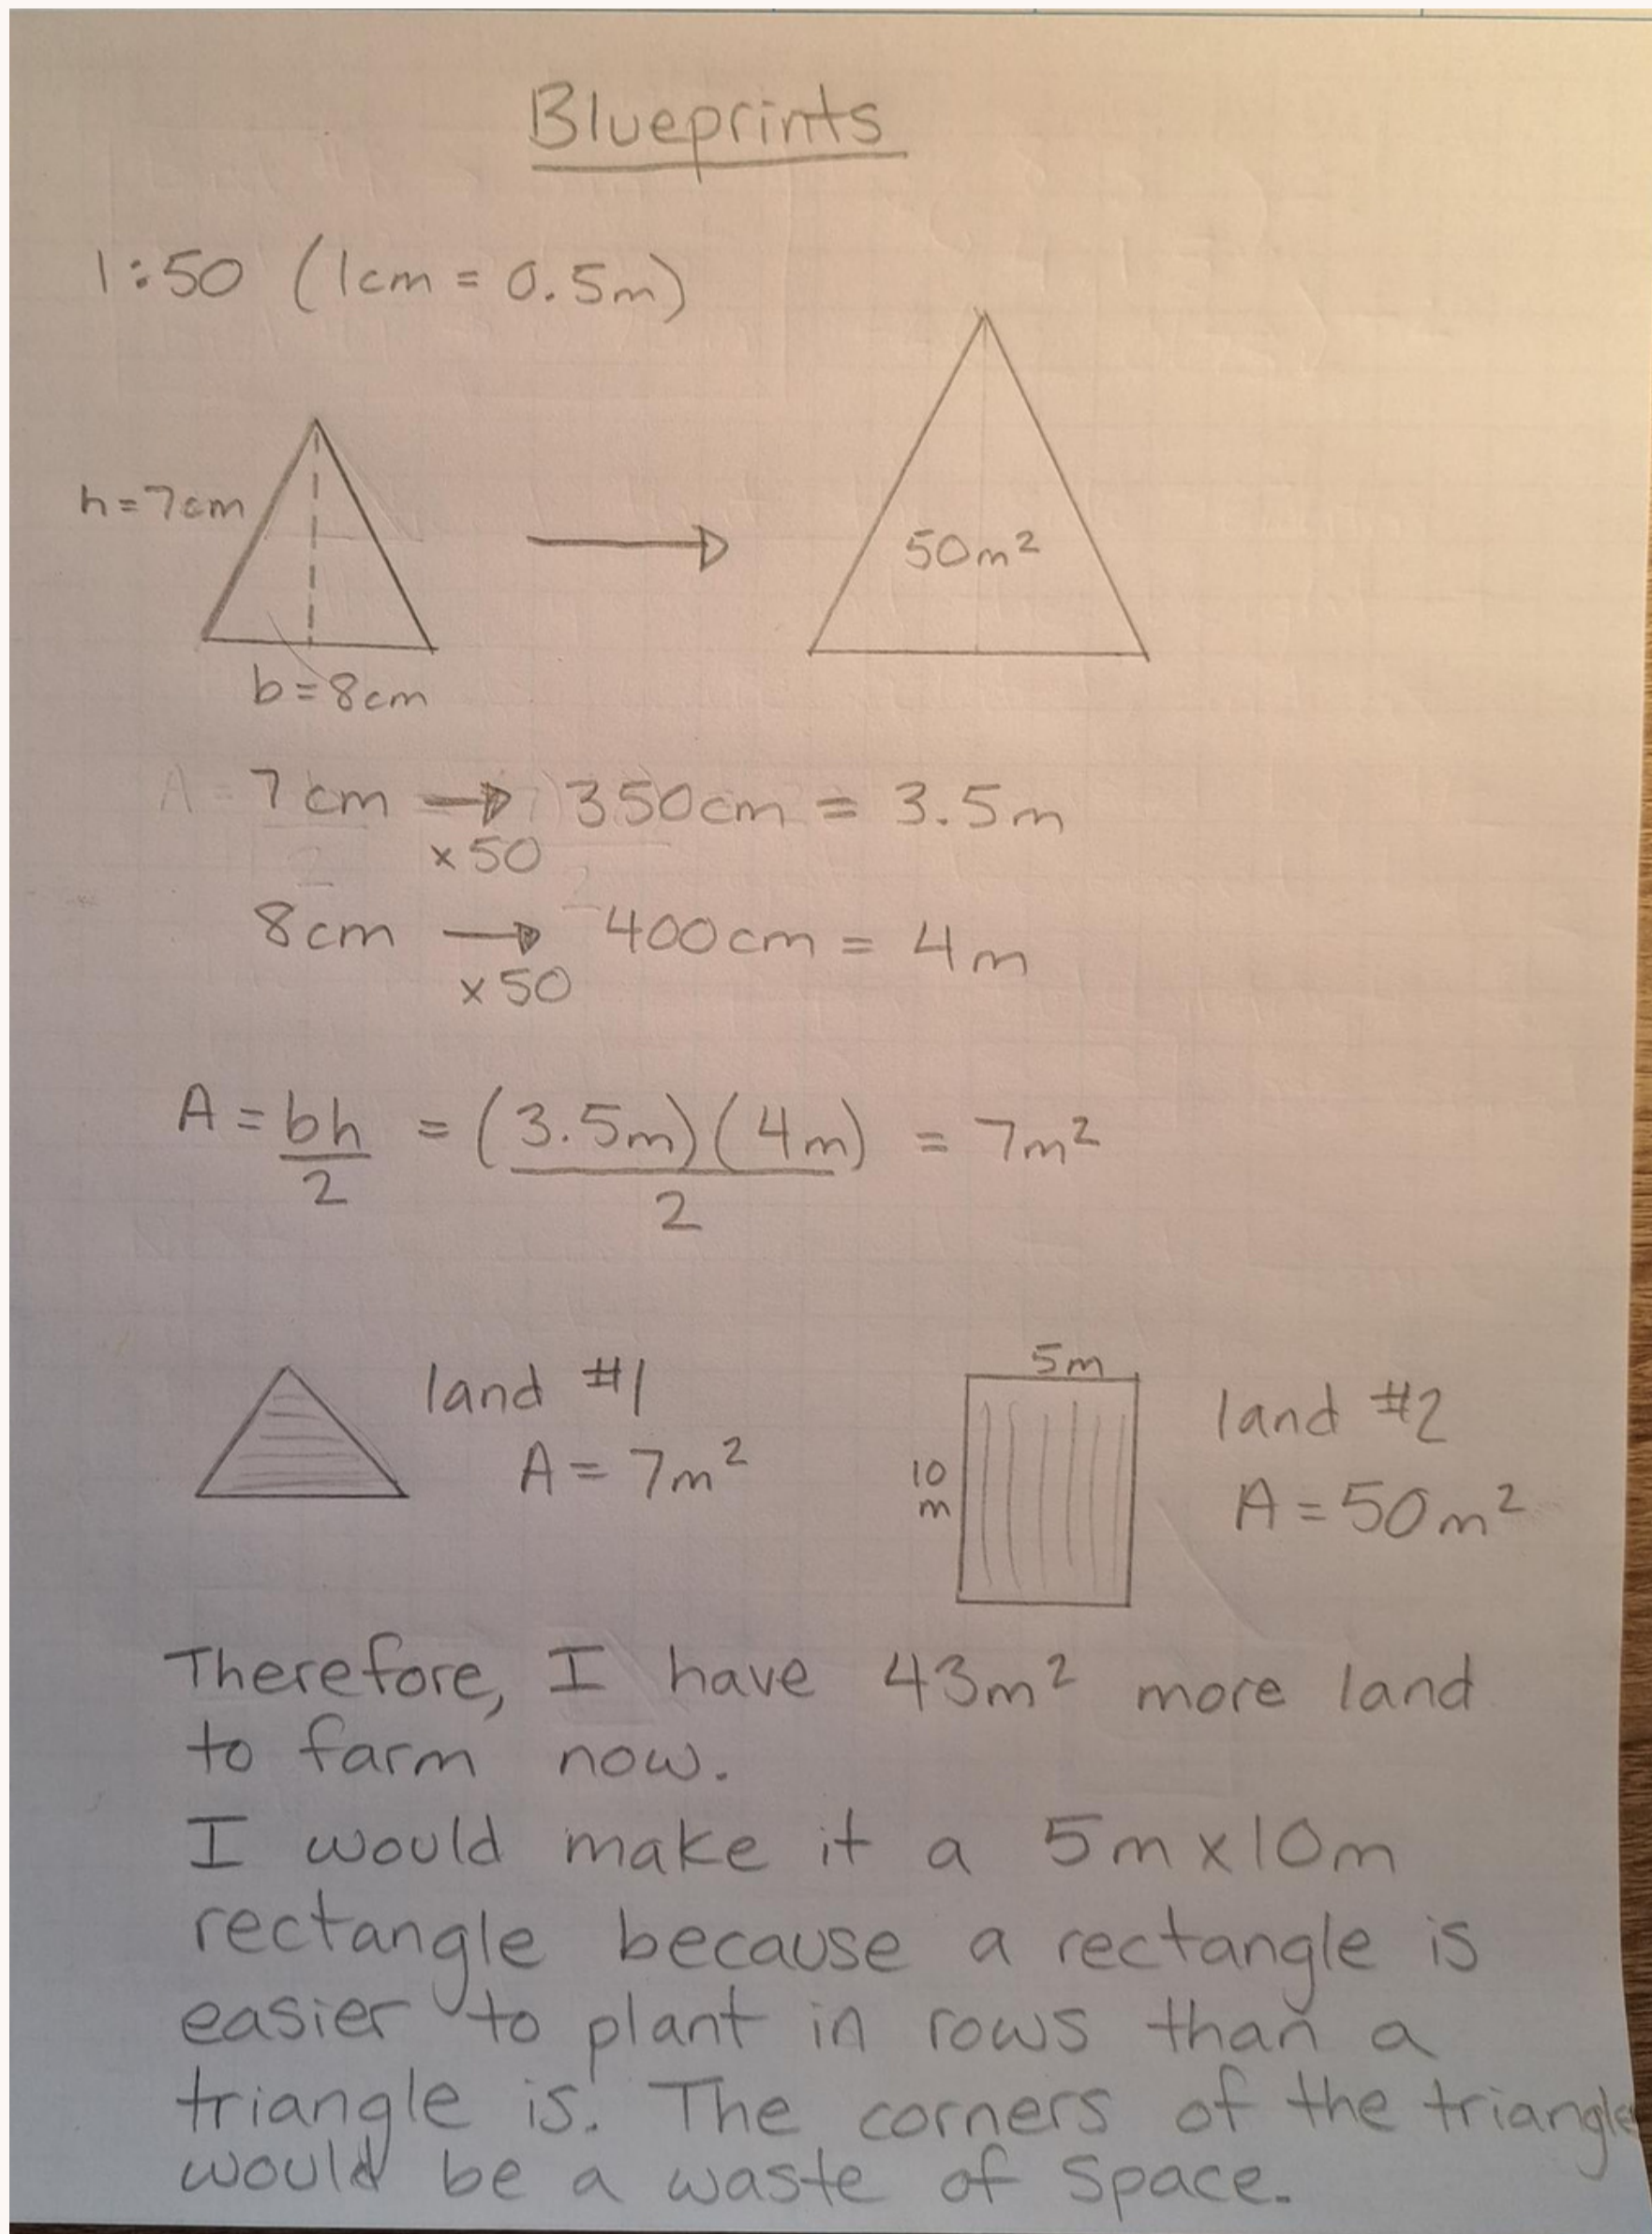 Blueprints
1:50 (1cm = 0.5m)
h=7cm
50m²
b=8cm
A = 7cm → 350cm = 3.5m
x50
8cm → 400cm = 4m
x50
A = bh/2 = (3.5m)(4m)/2 = 7m²
5m
land #1
land #2
A = 7m²
10
m
A = 50m²
Therefore, I have 43m² more land
to farm now.
I would make it a 5m x 10m
rectangle because a rectangle is
easier to plant in rows than a
triangle is. The corners of the triangle
would be a waste of space.